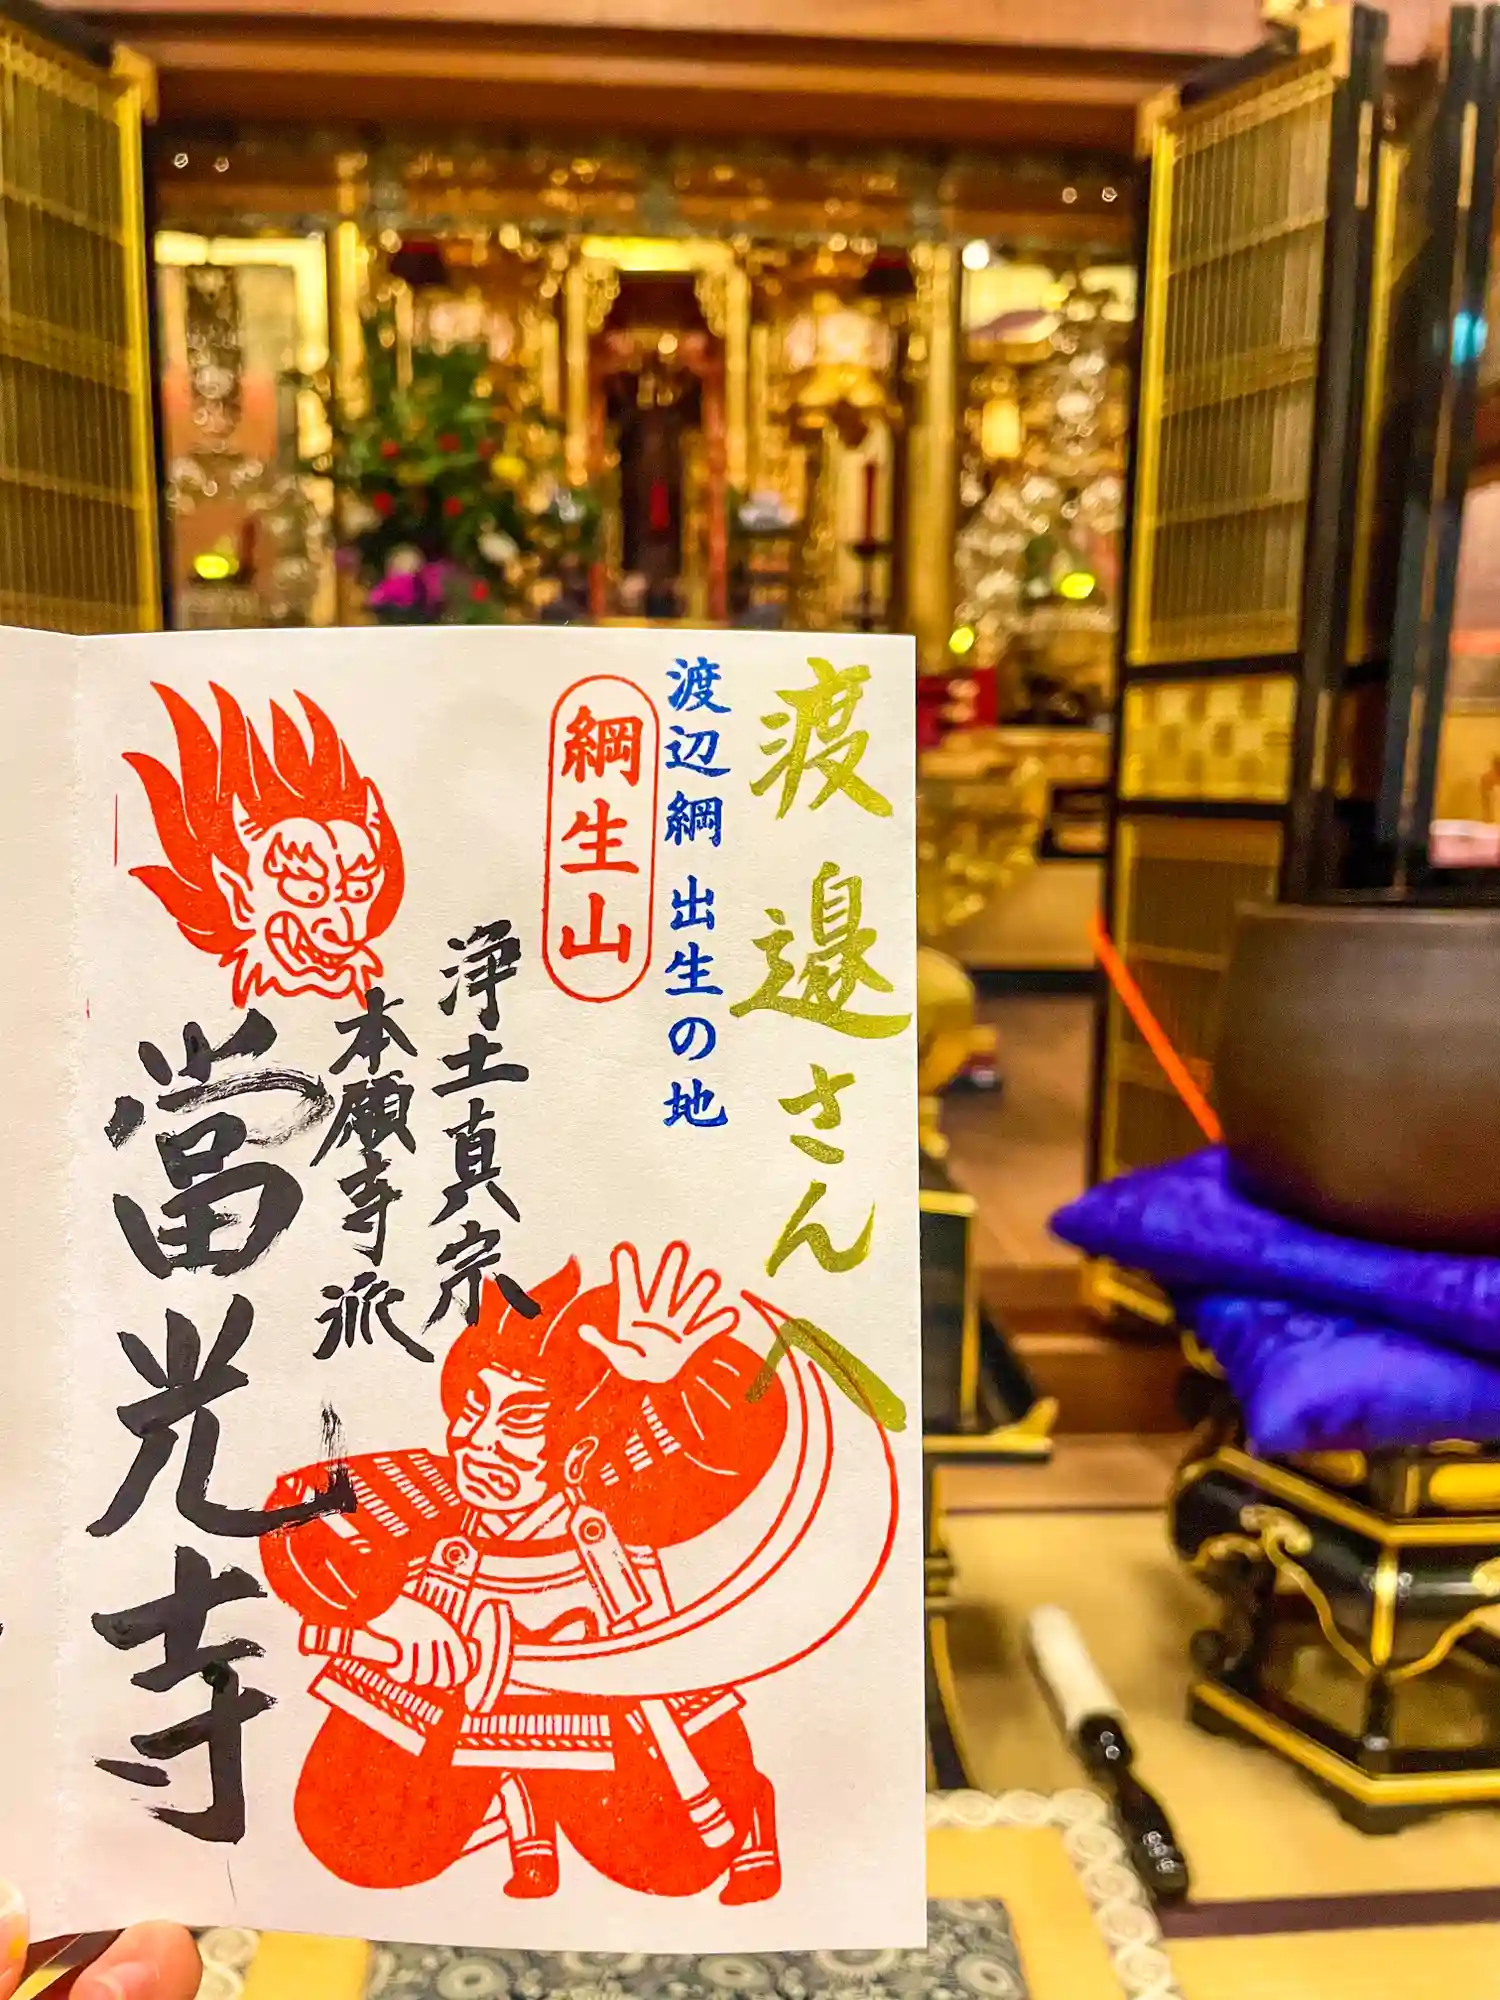 渡邉さんへ
渡辺綱 出生の地
綱生山
浄土真宗
本願寺派
當光寺